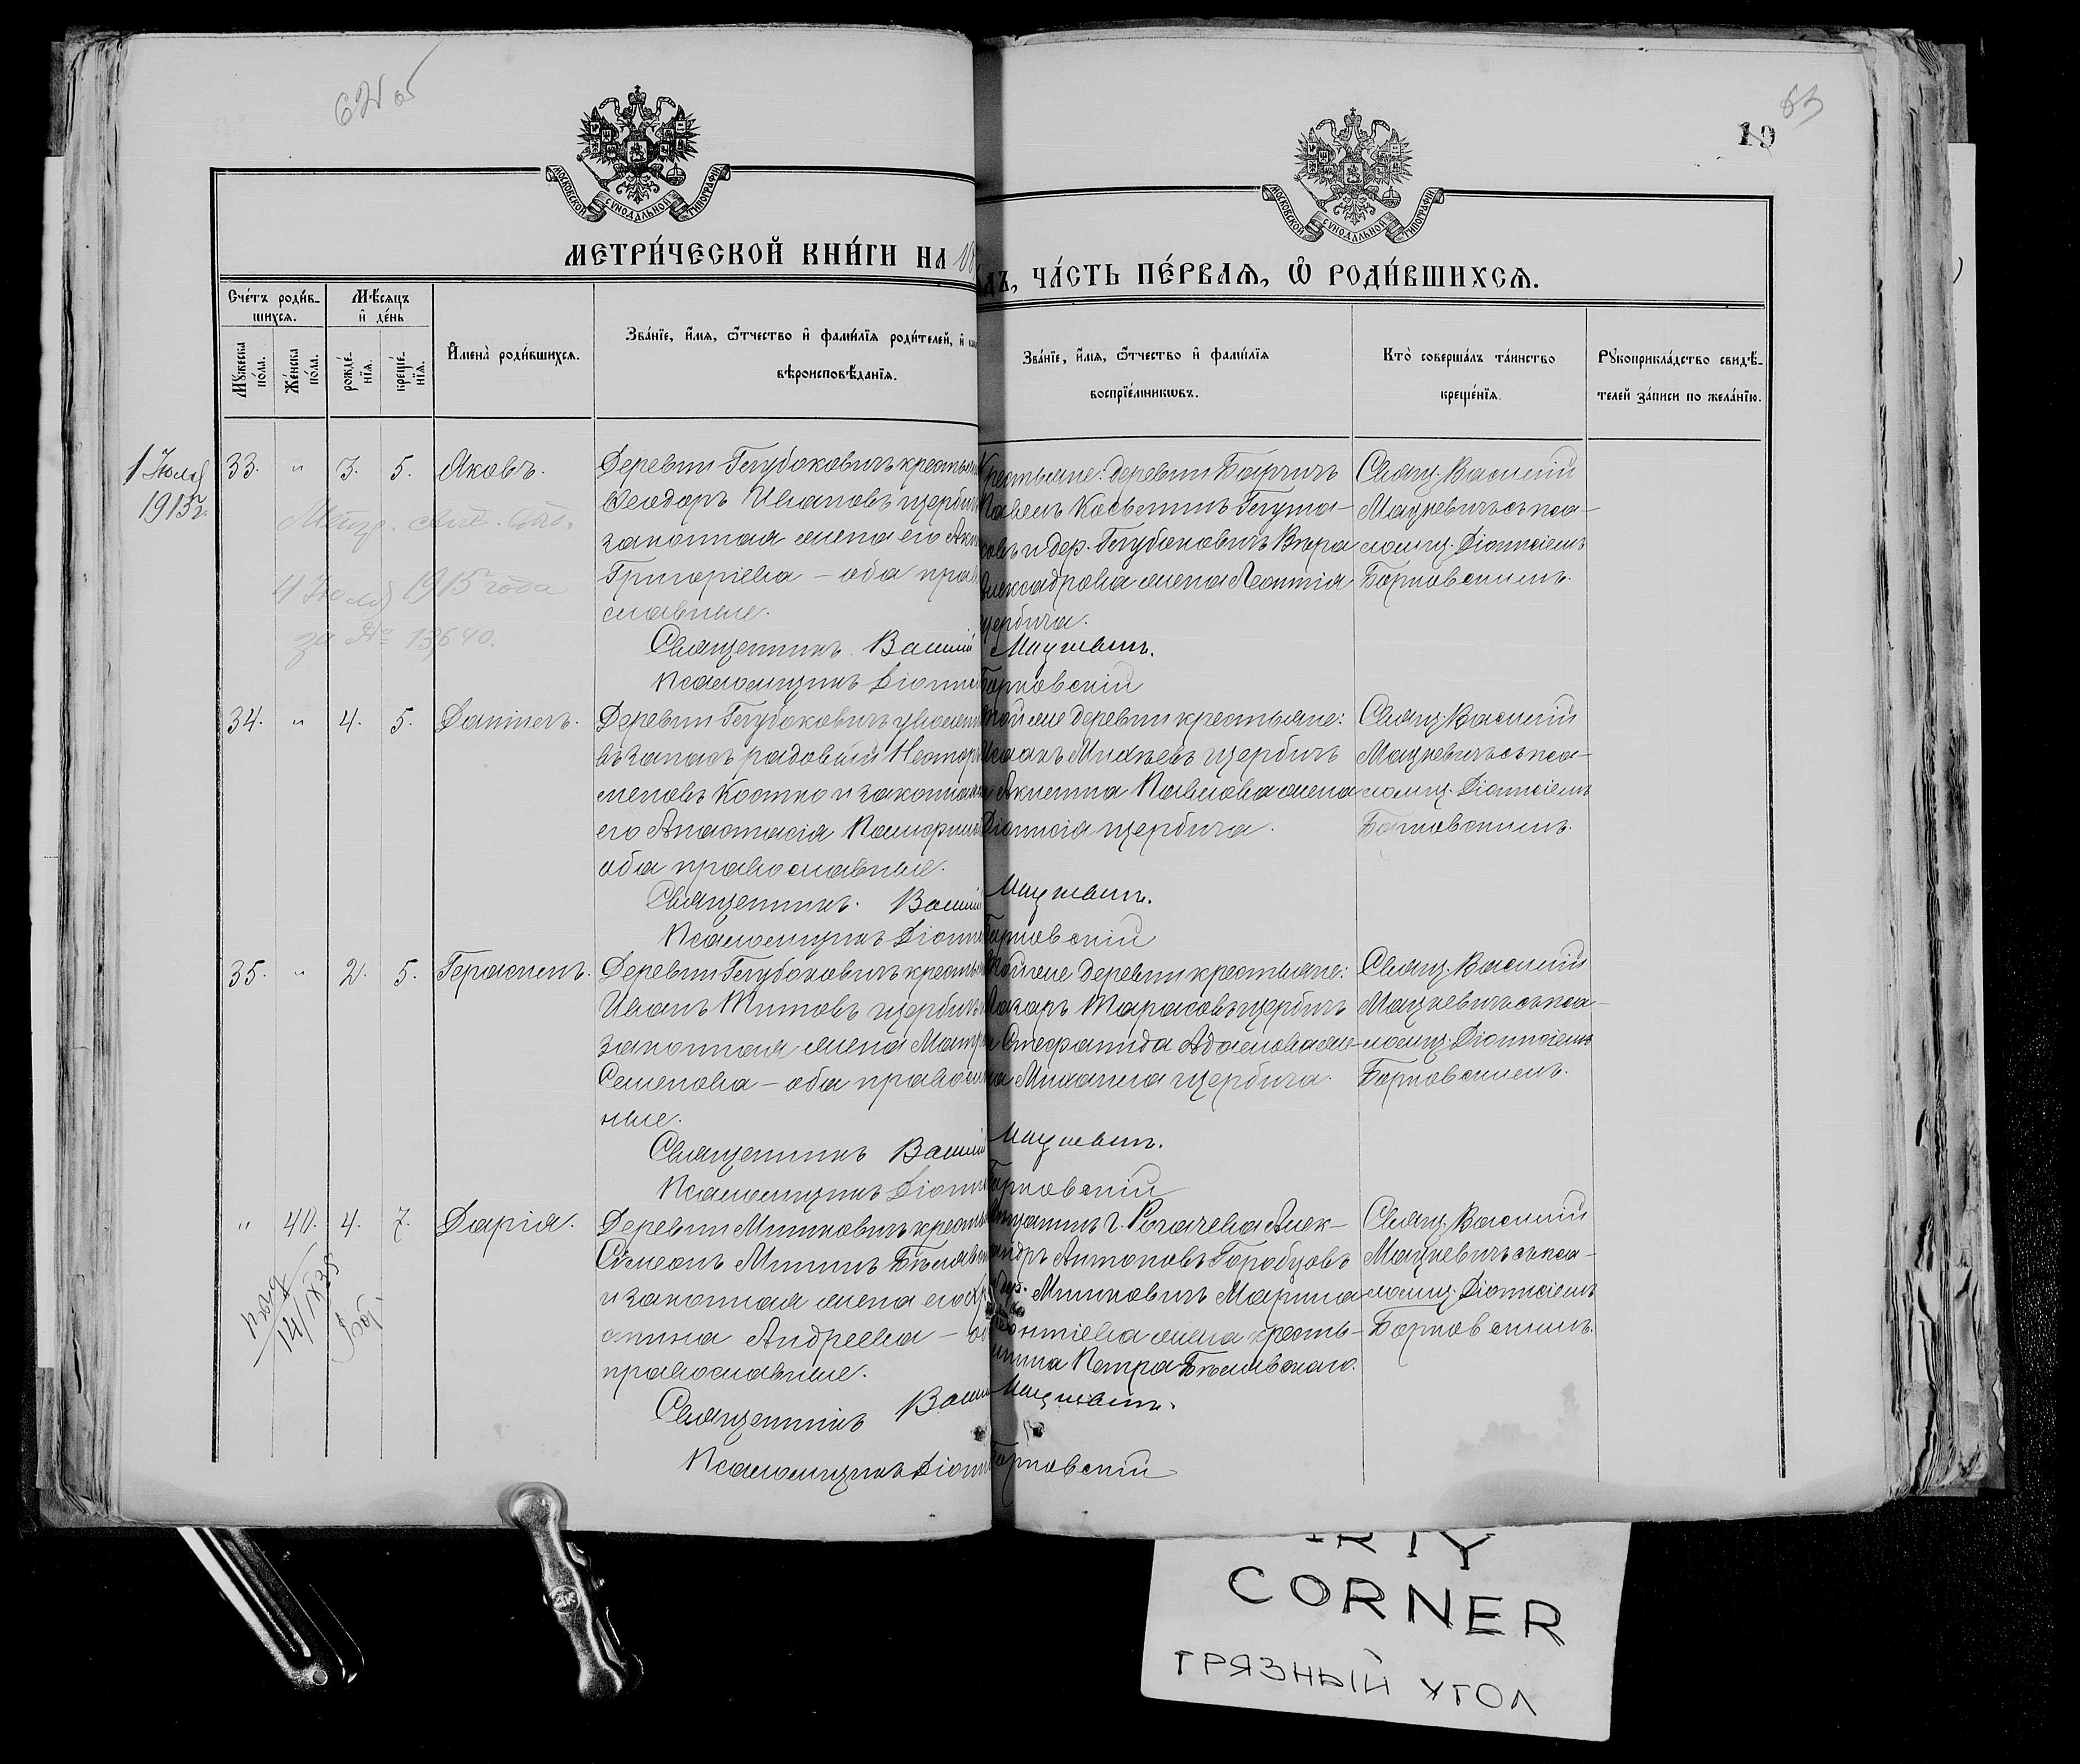 62 об
63
19
МОСКОВСКОЙ СѴНОДАЛЬНОЙ ТИПОГРАФІИ
МОСКОВСКОЙ СѴНОДАЛЬНОЙ ТИПОГРАФІИ
МЕТРИ́ЧЕСКОЙ КНИ́ГИ НА 18
ДЪ, ЧА́СТЬ ПЕ́РВАЯ, Ѽ РОДИ́ВШИХСЯ.
Сче́тъ роди́в-
шихся.
Мѣ́сяцъ
и де́нь
Му́жеска по́ла.
Же́нска по́ла.
рожде́-
нія.
креще́-
нія.
Имена̀ роди́вшихся.
Зва́ніе, и́мя, ѻ́тчество и фами́лія роди́телей, и
вѣроисповѣ́данія.
Зва́ніе, и́мя, ѻ́тчество и фами́лія
воспріе́мниковъ.
Кто̀ соверша́лъ та́инство
креще́нія.
Рꙋкоприкла́дство свидѣ́-
телей за́писи по жела́нію.
1 Іюля
1915 г.
33. " 3. 5. Яковъ.
Метр. свид. выд.
4 Іюля 1915 года
за № 13640.
Деревни Глубоковичъ крестьян
Ѳеодоръ Ивановъ Щербич
законная жена его Аки
Григоріева – оба прав
славные.
Священникъ Василій Мацкевичъ.
Псаломщикъ Діонис Барковскій
Крестьяне: деревни Барчичъ
Павелъ Косьминъ Глуша-
ковъ и дер. Глубоковичъ Вѣра
Александрова жена Леонтія
Щербича.
Свящ. Василій
Мацкевичъ съ пса-
ломщ. Діонисіемъ
Барковскимъ.
34. " 4. 5. Даніилъ.
Деревни Глубоковичъ уволен
въ запасъ рядовый Нестор
меновъ Костко и законная
его Анастасія Панфил
оба православные.
Священникъ Василій Мацкевичъ.
Псаломщикъ Діонис Барковскій
той же деревни крестьяне:
Исаакъ Михѣевъ Щербичъ
и Акилина Павлова жена
Діонисія Щербича.
Свящ. Василій
Мацкевичъ съ пса-
ломщ. Діонисіемъ
Барковскимъ.
35. " 2. 5. Герасимъ.
Деревни Глубоковичъ крестьян
Иванъ Титовъ Щербичъ
законная жена Матр
Семенова – оба правосл
ные.
Священникъ Василій Мацкевичъ.
Псаломщикъ Діонис Барковскій
той же деревни крестьяне:
Лазарь Тарасовъ Щербичъ
и Стефанида Адамова же-
на Михаила Щербича.
Свящ. Василій
Мацкевичъ съ пса-
ломщ. Діонисіемъ
Барковскимъ.
" 40. 4. 7. Дарія.
14/IX 35
Деревни Минковичъ крестьян
Сѵмеонъ Мининъ Бѣлявск
и законная жена его Хри
стина Андреева – об
православные.
Священникъ Васил Мацкевичъ.
Псаломщикъ Діони Барковскій
Мѣщанинъ г. Рогачева Алек-
сандръ Антоновъ Горобцовъ
и дер. Минковичъ Марина
Леонтіева жена кресть-
янина Петра Бѣлявскаго.
Свящ. Василій
Мацкевичъ съ пса-
ломщ. Діонисіемъ
Барковскимъ.
CORNER
ГРЯЗНЫЙ УГОЛ